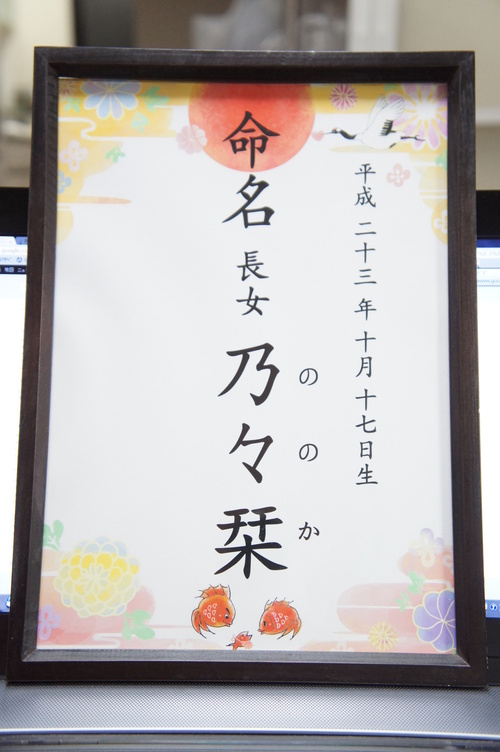 平成二十三年十月十七日生
命名 長女 乃々栞
ののか